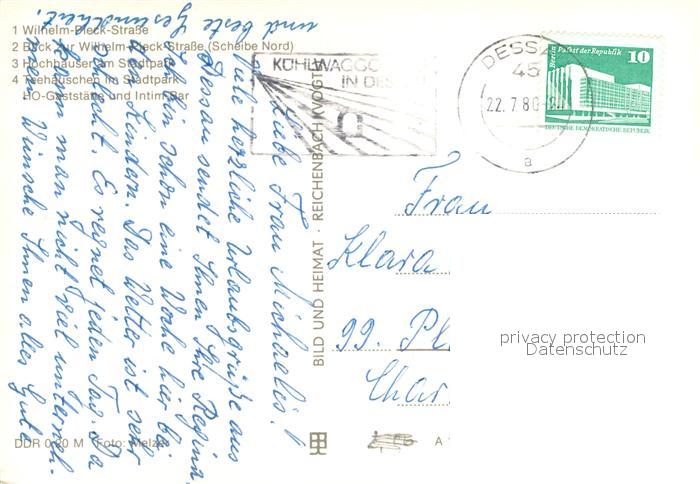 1 Wilhelm-Pieck-Straße
2 Blick zur Wilhelm-Pieck-Straße (Scheibe Nord)
3 Hochhäuser am Stadtpark
4 Teehäuschen im Stadtpark
HO-Gaststätte und Intim-Bar
Liebe Frau Michaelis!
Viele herzliche Urlaubsgrüße aus
Dessau sendet Ihnen Ihre Regina.
Ich bin schon eine Woche hier bei
Kindern. Das Wetter ist sehr
schlecht. Es regnet jeden Tag. Da
kann man nicht viel unterneh-
men. Wünsche Ihnen alles Gute
und beste Gesundheit.
DDR 0,20 M Foto: Melzer
BILD UND HEIMAT · REICHENBACH (VOGTL
KÜHLWAGGO
IN DES
DESSA
45
22.7.80
a
Berlin Palast der Republik
10
DEUTSCHE DEMOKRATISCHE REPUBLIK
Frau
Klara
99. Pl
Char
A 1
privacy protection
Datenschutz